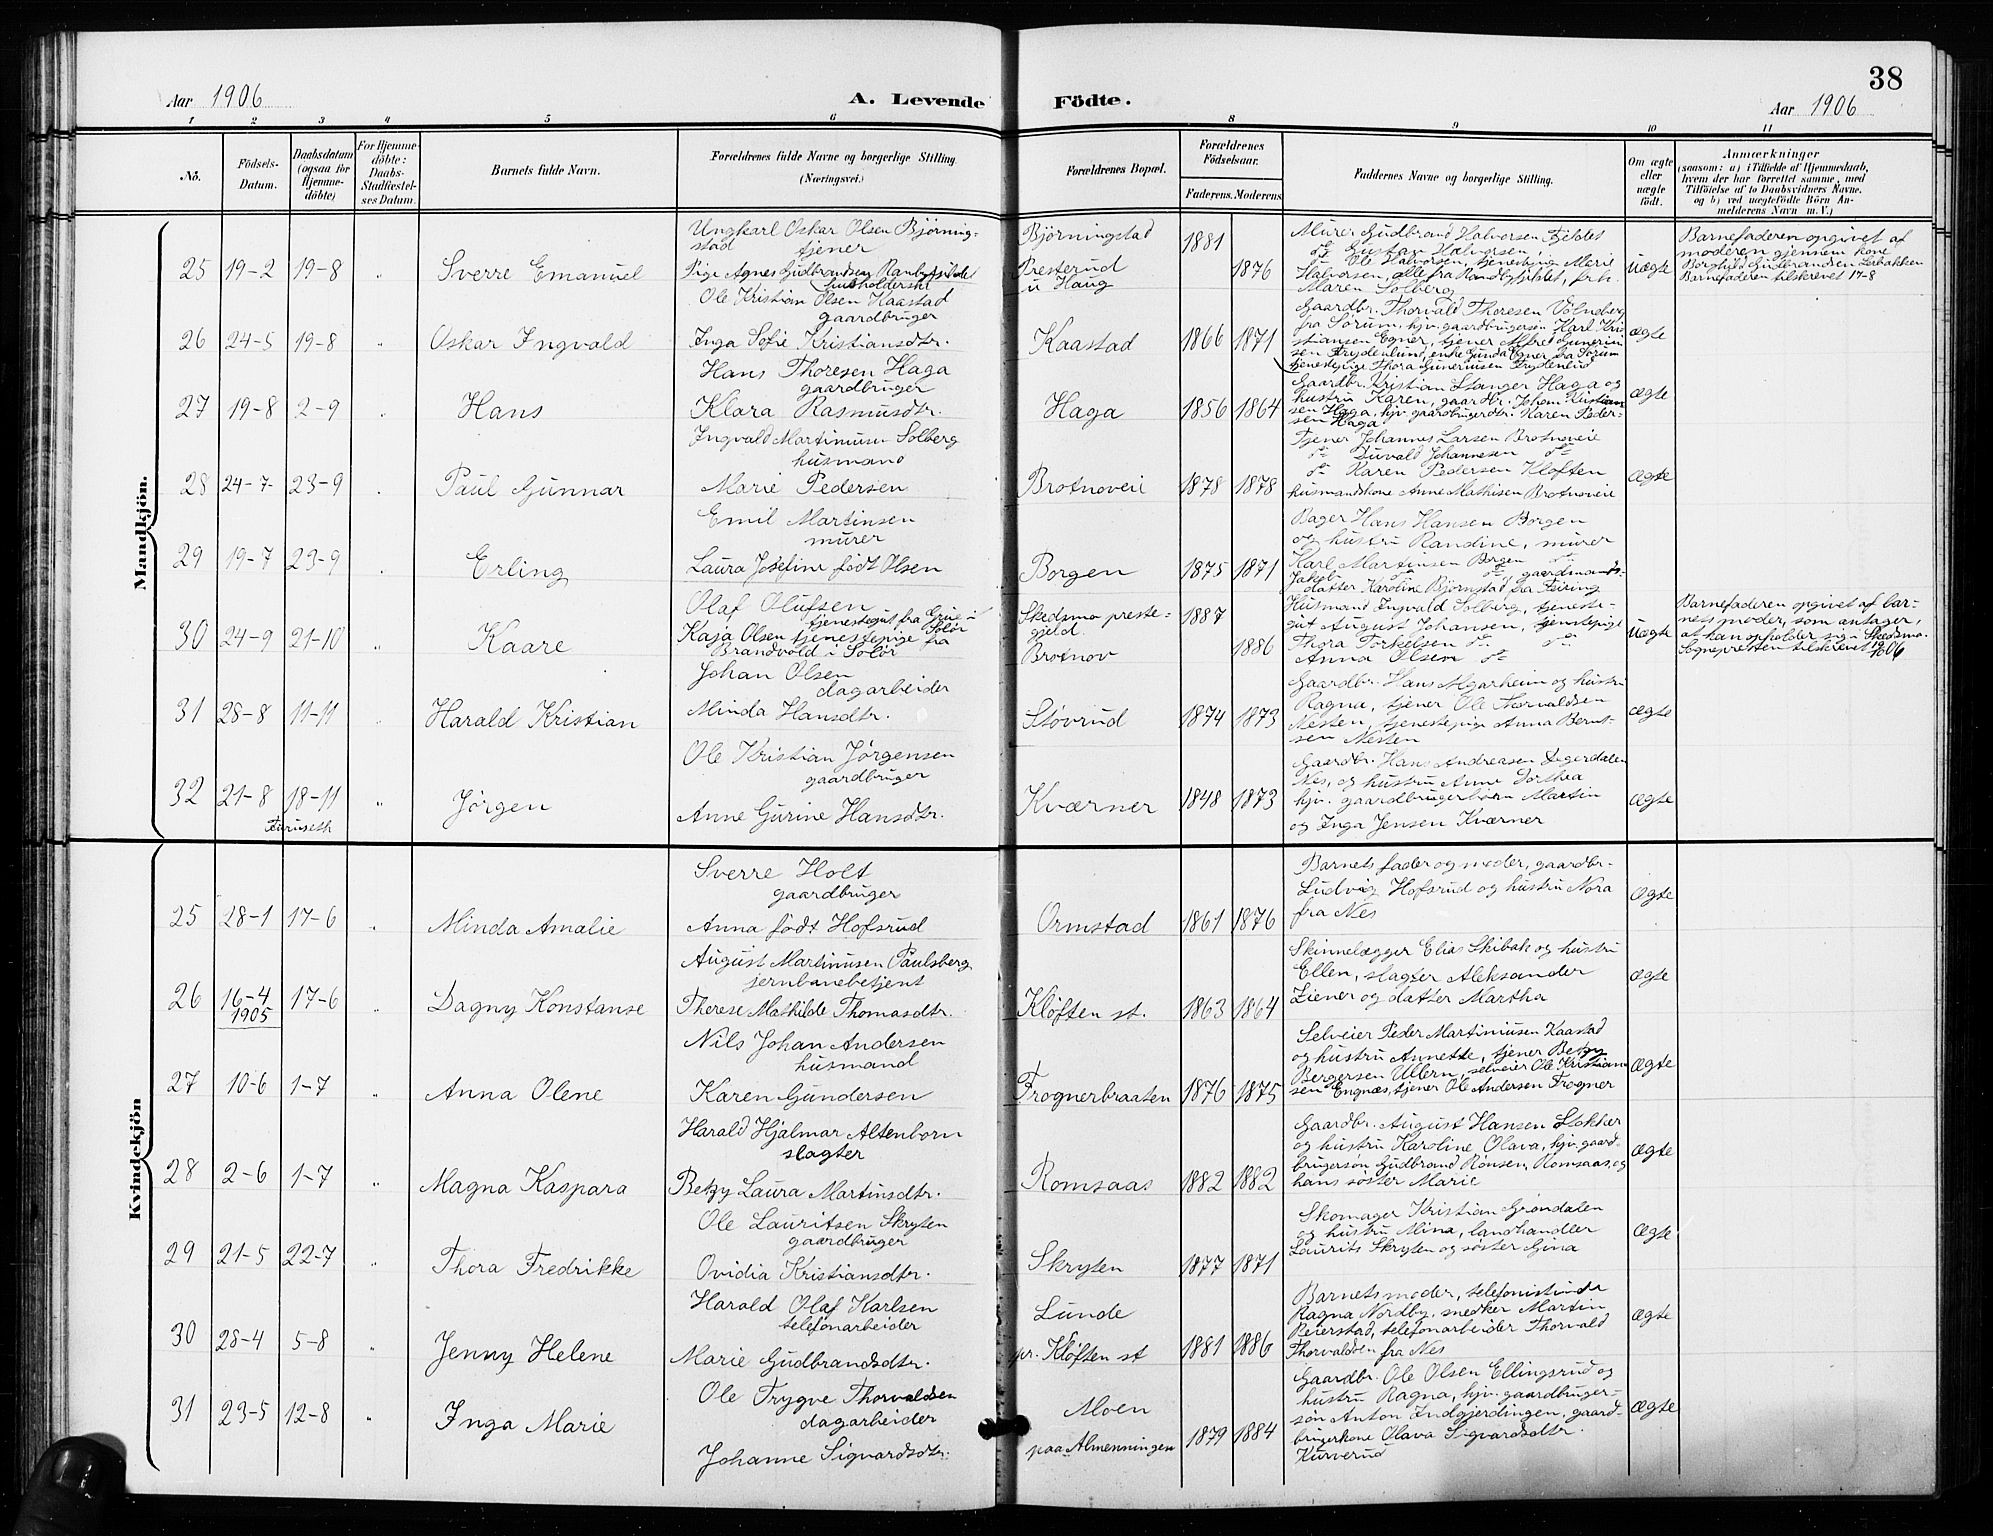 38
Aar 1906
A. Levende Födte.
Aar 1906
1 2 3 4 5 6 8 9 10 11
Nö.
Födsels-Datum.
Daabsdatum (ogsaa for Hjemme-döbte)
For Hjemme-döbte: Daabs-Stadfæstel-ses Datum.
Barnets fulde Navn.
Forældrenes fulde Navne og borgerlige Stilling. (Næringsvei.)
Forældrenes Bopæl.
Forældrenes Födselsaar.
Faderens. Moderens.
Faddernes Navne og borgerlige Stilling.
Om ægte eller uægte födt.
Anmærkninger
(saasom: a) i Tilfælde af Hjemmedaab,
hvem der har forrettet samme, med
Tilföielse af to Daabsvidners Navne.
og b) ved uægtefödte Börn An-
melderens Navn m. V.)
Mandkjön.
25 19-2 19-8 " Sverre Emanuel
Ungkarl Oskar Olsen Bjørning-
stad tjener
Pige Agnes Gudbrandsen Ranbyfjeldet
husholderske
Bjørningstad
Presterud
u Haug
1881
1876
Murer Gudbrand Halvorsen Fjeldet
do Gustav Halvorsen
do Ole Halvorsen, tjenestepige Marie
Halvorsen, alle fra Randbyfjeldet, frk.
Maren Solberg
uægte
Barnefaderen opgivet af
moderen gjennem kone
Borghild Gudbrandsen Labakken
Barnefaderen tilskrevet 17-8
26 24-5 19-8 " Oskar Ingvald
Ole Kristian Olsen Kaastad
gaardbruger
Inga Sofie Kristiansdtr.
Kaastad
1866 1871
Gaardbr. Thorvald Thoresen Völneberg
fra Sörum, hjv. gaardbrugersøn Karl Kri
stiansen Egner, tjener Alfred Guneriu
sen Frydenlund, enke Gunda Egner fra Sörum
tjenestepige Thora Gunerіusen Frydenlund
ægte
27 19-8 2-9 " Hans
Hans Thoresen Haga
gaardbruger
Klara Rasmusdtr.
Haga
1856 1864
Gaardbr. Kristian Stanger Haga og
hustru Karen, gaardbr. Johan Kristian
sen Haga, hjv. gaardbrugerdtr. Karen Peder-
sen Haga
ægte
28 24-7 23-9 " Paul Gunnar
Ingvald Martinusen Solberg
husmand
Marie Pedersen
Brotnoveie
1878 1878
Tjener Johannes Larsen Brotnoveie
do Duvald Johannesen do
do Karen Pedersen Kløften
husmandskone Anne Mathisen Brotnoveie
ægte
29 19-7 23-9 " Erling
Emil Martinsen
murer
Laura Josefine født Olsen
Borgen
1875 1871
Bager Hans Hansen Borgen
og hustru Randine, murer
Karl Martinsen Borgen do
Jakob do do gaardmands-
datter Karoline Bjørnstad fra Feiring
30 24-9 21-10 " Kaare
Olaf Olufsen
tjenestegut fra Grue i Solør
Kaja Olsen tjenestepige fra
Brandvold i Solør
Skedsmo preste-
gjeld
Brotnov
1887
1886
Husmand Ingvald Solberg, tjeneste-
gut August Johansen, tjenstepige
Thora Torkelsen do do
Anna Olsen do
uægte
Barnefaderen opgivet af bar-
nets moder, som antager,
at han opholder sig i Skedsmo.
Sognepresten tilskrevet 19/10 06
31 28-8 11-11 " Harald Kristian
Johan Olsen
dagarbeider
Minda Hansdtr.
Støvrud
1874 1873
Gaardbr. Hans Mgarheim og hustru
Ragna, tjener Ole Thorvaldsen
Nesten, tjenestepige Anna Bernt-
sen Nesten
ægte
32 21-8 18-11 " Jørgen
Furuseth
Ole Kristian Jørgensen
gaardbruger
Anne Gurine Hansdtr.
Kværner
1848 1873
Gaardbr. Hans Andreasen Degerdalen
Nes, og hustru Anne Dorthea
hjv. gaardbrugerbørn Martin
og Inga Jensen Kværner
ægte
Kvindekjön
25 28-1 17-6 " Minda Amalie
Sverre Holt
gaardbruger
Anna født Hofsrud
Ormstad
1861 1876
Barnets fader og moder, gaardbr.
Ludvig Hofsrud og hustru Nora
fra Nes
Ægte
26 16-4 1905 17-6 " Dagny Konstanse
August Martinusen Paulsberg
jernbanebetjent
Therese Mathilde Thomasdtr.
Kløften st.
1863 1864
Skinnelægger Elias Skibak og hustru
Ellen, slagter Aleksander
Ziener og datter Martha
ægte
27 10-6 1-7 " Anna Olene
Nils Johan Andersen
husmand
Karen Gundersen
Frognerbraaten
1876 1875
Selveier Peder Martiniusen Kaastad
og hustru Annette, tjener Betzy
Bergersen Ullern, selveier Ole Kristian
sen Engnæs, tjener Ole Andersen Frogner
Ægte
28 2-6 1-7 " Magna Kaspara
Harald Hjalmar Altenborn
slagter
Betzy Laura Martinsdtr.
Romsaas
1882 1882
Gaardbr. August Hansen Stokker
og hustru Karoline Olava, hjv. gaard-
brugersøn Gudbrand Rønsen, Romsaas, og
hans søster Marie
ægte
29 21-5 22-7 " Thora Fredrikke
Ole Lauritsen Skryten
gaardbruger
Ovidia Kristiansdtr.
Skryten
1877 1871
Skomager Kristian Grøndalen
og hustru Mina, landhandler
Laurits Skryten og søster Gina
Ægte
30 28-4 5-8 " Jenny Helene
Harald Olaf Karlsen
telefonarbeider
Marie Gudbrandsdtr.
Lunde
pr. Kløften st
1881 1886
Barnets moder, telefonistinde
Ragna Nordby, snedker Martin
Beierstad, telefonarbeider Thorvald
Thorvaldsen fra Nes
Ægte
31 23-5 12-8 " Inga Marie
Ole Trygve Thorvaldsen
dagarbeider
Johanne Sigvardsdtr.
Moen
paa Almenningen
1879 1884
Gaardbr. Ole Olsen Ellingsrud og
hustru Ragna, hjv. gaardbruger-
søn Anton Indgjerdingen, gaard-
brugerkone Olava Sigvardsdtr.
Kurverud
Ægte